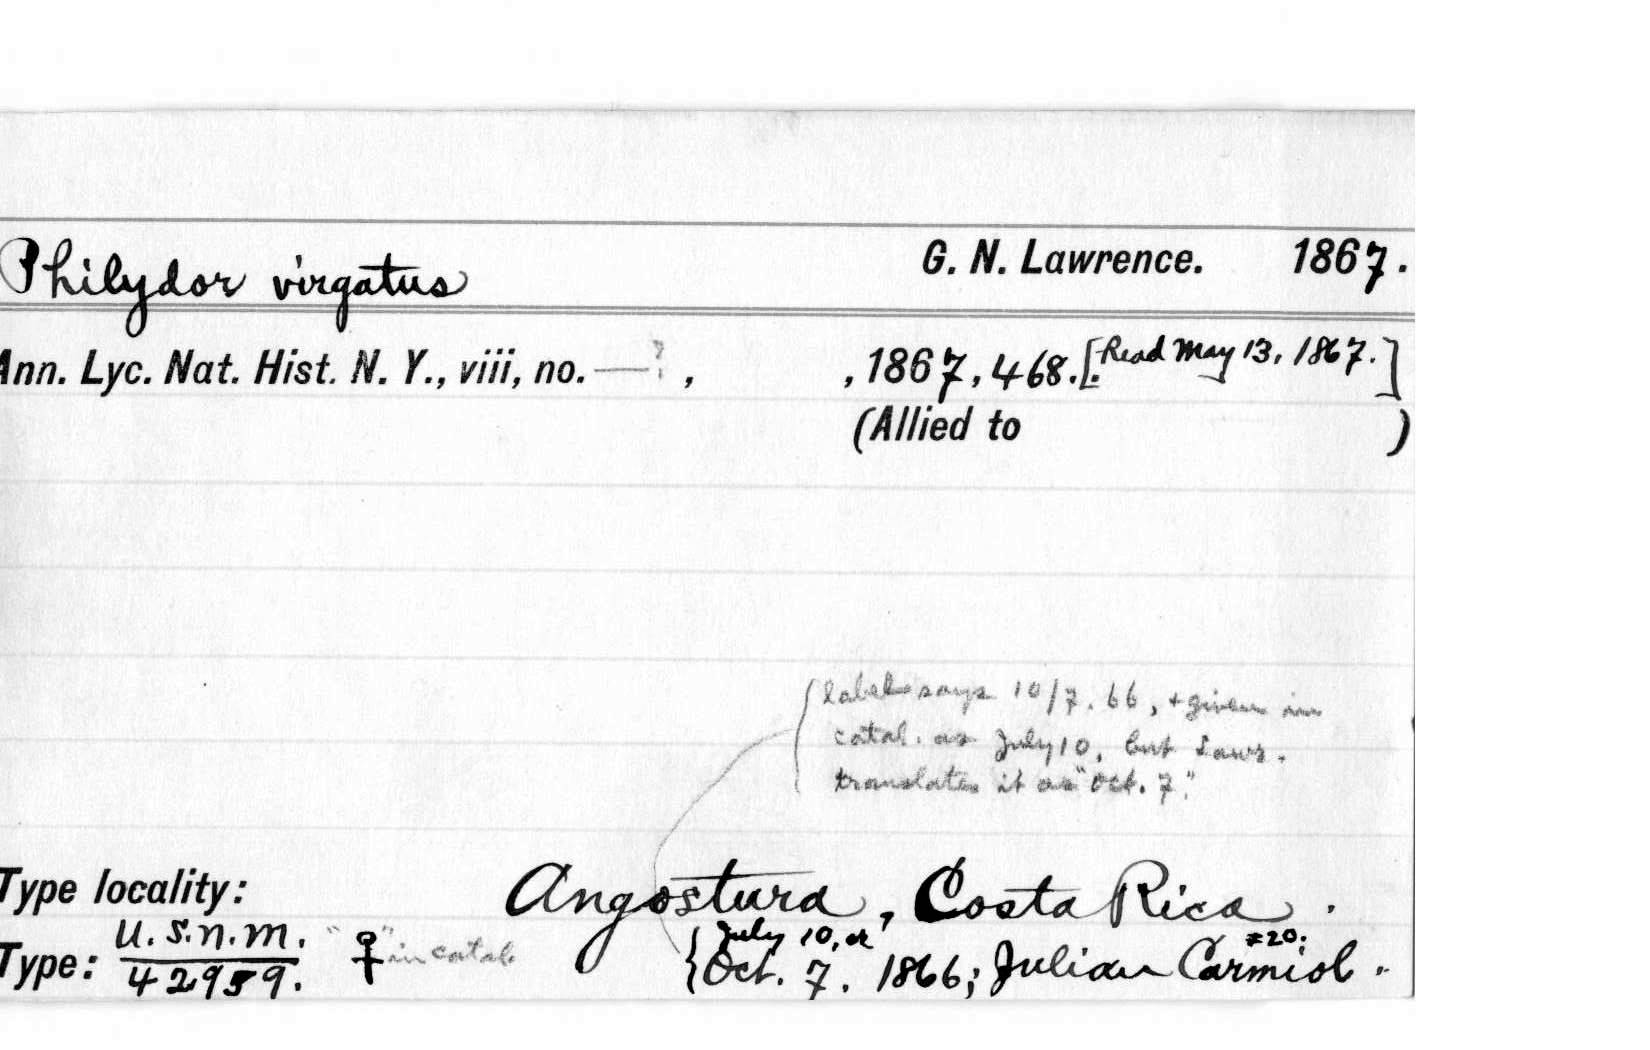 Philydor virgatus G. N. Lawrence. 1867.
Ann. Lyc. Nat. Hist. N. Y., viii, no. —?, , 1867, 468. [Read May 13, 1867.]
(Allied to )
label says 10/7. 66, + given in
catal. as July 10, but Lawr.
translates it as "Oct. 7".
Type locality: Angostura, Costa Rica.
U.S.N.M. July 10, or #20;
Type: 42959. "♀" in catal. Oct. 7. 1866; Julian Carmiol.